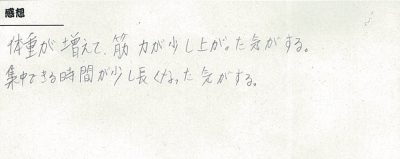 感想
体重が増えて、筋力が少し上がった気がする。
集中できる時間が少し長くなった気がする。